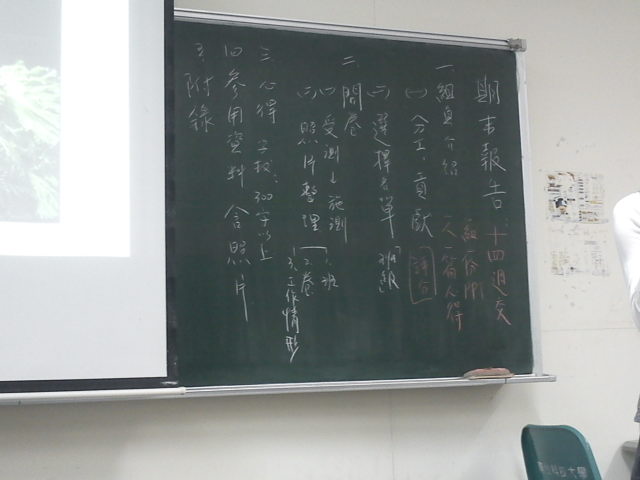 期末報告
十四週交
一組一份
一人一篇心得
一組員介紹
(一)分工、貢獻
評分
(二)選擇名單「班級」
二問卷
(一)受測、施測
(二)照片整理
1.班
2.卷
3.工作情形
三、心得 字校:300字以上
四參用資料 含照片
五、附錄
科技大學